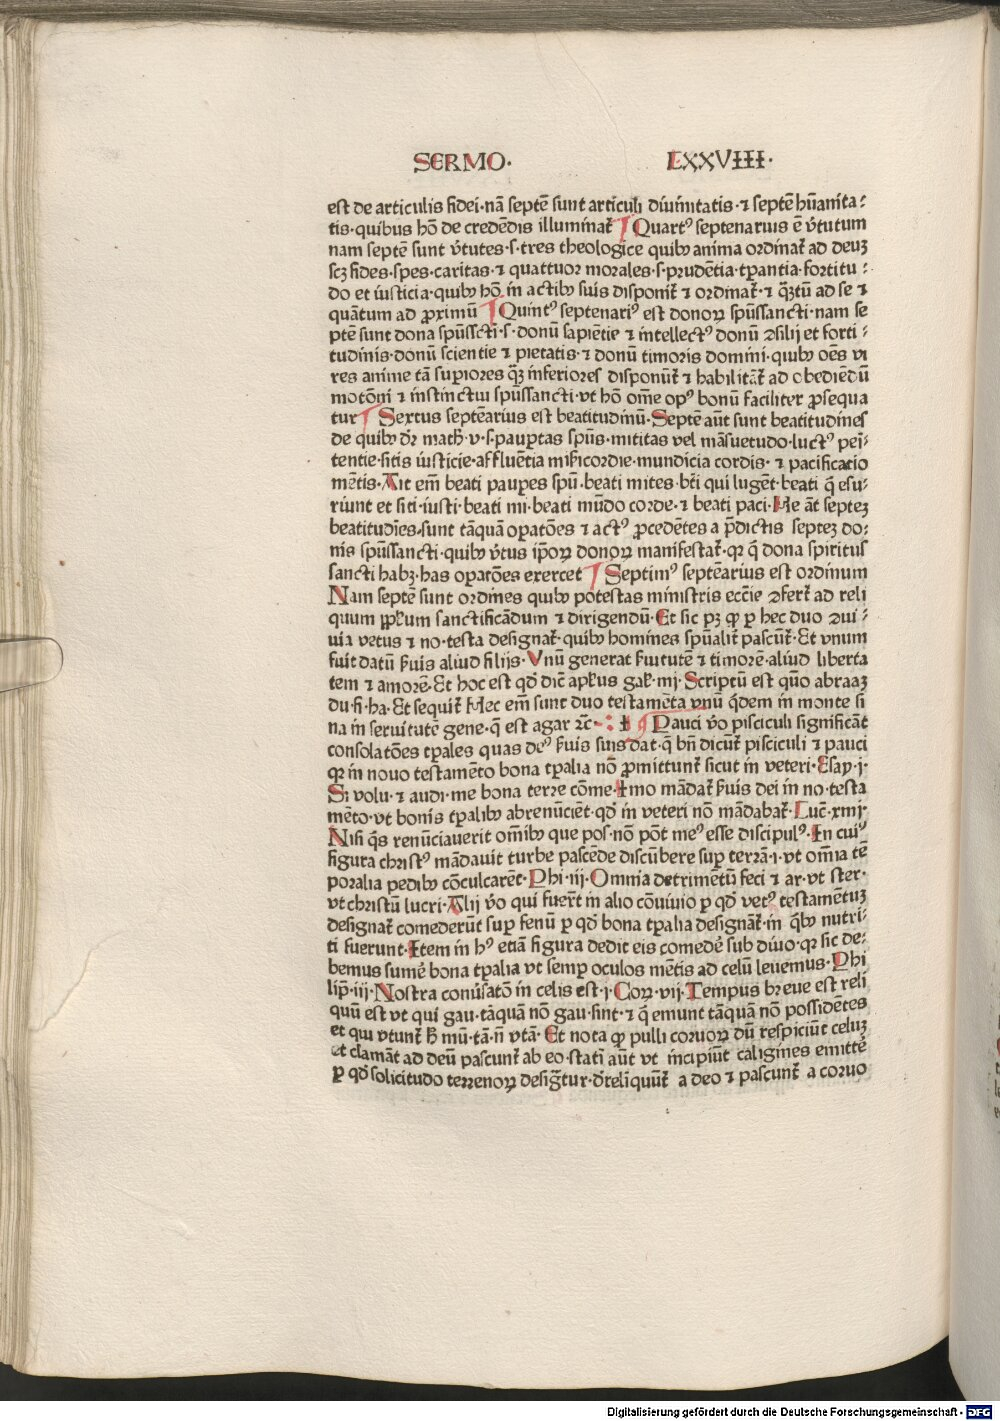 SERMO· LXXVIII·
est de articulis fidei·nā septē sunt articuli diuinitatis·⁊ septē hūanita⸗
tis·quibus hōo de credēdis illuminat᷑ Quartꝰ septenarius ē v̾tutum
nam septē sunt v̾tutes·s·tres theologice quibꝫ anima ordinat᷑ ad deuꝫ
scꝫ fides·spes·caritas·⁊ quattuor morales·s·prudētia·tꝑantia·fortitu⸗
do et iusticia·quibꝫ hō in actibꝫ suis disponit᷑ ⁊ ordinat᷑·⁊ q̄ꝫtū ad se ⁊
quātum ad ꝓximū Quintꝰ septenariꝰ est donoꝝ spūssancti·nam se
ptē sunt dona spūsscti·s·donū sapiētie ⁊ intellectꝰ donū ꝯsilij et forti⸗
tudinis·donū scientie ⁊ pietatis·⁊ donū timoris domini·quibꝫ oēs vi
res anime tā suꝑiores q̄ꝫ inferiores disponūt᷑ ⁊ habilitāt᷑ ad obediēdū
motōni ⁊ instinctui spūssancti·vt hō om̄e opꝰ bonū faciliter ꝓsequa
tur Sextus septēarius est beatitudinū·Septē aūt sunt beatitudines
de quibꝫ dr̄ math̄·v·s·pauꝑtas spūs·mititas vel māsuetudo·luctꝰ peīi⸗
tentie·sitis iusticie·affluētia mīsicordie·mundicia cordis·⁊ pacificatio
mētis·Ait em̄ beati pauꝑes spū·beati mites·bt̄i qui lugēt·beati q̄ esu⸗
riunt et siti·iusti·beati mi·beati mūdo corde·⁊ beati paci·He āt septeꝫ
beatitudīes·sunt tāquā oꝑatōes ⁊ actꝰ ꝓcedētes a p̄dictis septeꝫ do⸗
nis spūssancti·quibꝫ v̾tus ip̄oꝝ donoꝝ manifestat᷑·qꝛ q̄ dona spiritus
sancti habꝫ·has oꝑatōes exercet Septimꝰ septēarius est ordinum
Nam septē sunt ordines quibꝫ potestas ministris eccīe ꝯfert᷑ ad reli
quum ppl̄um sanctificādum ⁊ dirigendū·Et sic pꝫ ꝙ ꝑ hec duo ꝯui⸗
uia vetus ⁊ no·testa designat᷑·quibꝫ homines spūalit᷑ pascūt᷑·Et vnum
fuit datū ẜuis aliud filijs·Vnū generat ẜuitutē ⁊ timorē·aliud liberta
tem ⁊ amorē·Et hoc est qd̄ dic̄ apl̄us gal̄·iiij·Scriptū est quō abraaꝫ
du·fi·ha·Et sequit᷑ Hec em̄ sunt duo testamēta vnū q̄dem in monte si
na in seruitutē gene·q̄ est agar ⁊c̄ Pauci v̄o pisciculi significāt
consolatōes tꝑales quas deꝰ ẜuis suis dat·q̄ bn̄ dicūt᷑ pisciculi ⁊ pauci
qꝛ in nouo testamēto bona tꝑalia nō ꝓmittunt᷑ sicut in veteri·Esay·j·
Si volu·⁊ audi·me bona terre cōme·Imo mādat᷑ ẜuis dei in no·testa
mēto·vt bonis tꝑalibꝫ abrenūciēt·qd̄ in veteri nō mādabat᷑·Luc̄·xiiij·
Nisi q̄s renūciauerit om̄ibꝫ que pos·nō pōt meꝰ esse discipulꝰ·In cuiꝰ
figura christꝰ mādauit turbe pascēde discūbere suꝑ terrā·i·vt om̄ia tē
poralia pedibꝫ cōculcarēt·Phi·iij·Omnia detrimētū feci ⁊ ar·vt ster·
vt christū lucri·Alij v̄o qui fuer̄t in alio cōuiuio ꝑ qd̄ vetꝰ testamētuꝫ
designat᷑ comederūt suꝑ fenū ꝑ qd̄ bona tꝑalia designāt᷑·in q̄bꝫ nutri⸗
ti fuerunt·Item in hꝰ etiā figura dedit eis comedē sub diuo·qꝛ sic de⸗
bemus sumē bona tꝑalia vt semꝑ oculos mētis ad celū leuemus·Phi
lip̄·iij·Nostra conūsatō in celis est·j·Coꝝ·vij·Tempus breue est reli
quū est vt qui gau·tāquā nō gau·sint·⁊ q̄ emunt tāquā nō possidētes
et qui vtunt᷑ h̄ mū·tā·n̄ vtā·Et nota ꝙ pulli coruoꝝ dū respiciūt celuꝫ
et clamāt ad deū pascunt᷑ ab eo·stati aūt vt incipiūt caligines emittē
ꝑ qd̄ solicitudo terrenoꝝ desigr̄tur·d̄relinquūt᷑ a deo ⁊ pascunt᷑ a coruo
Digitalisierung gefördert durch die Deutsche Forschungsgemeinschaft - DFG